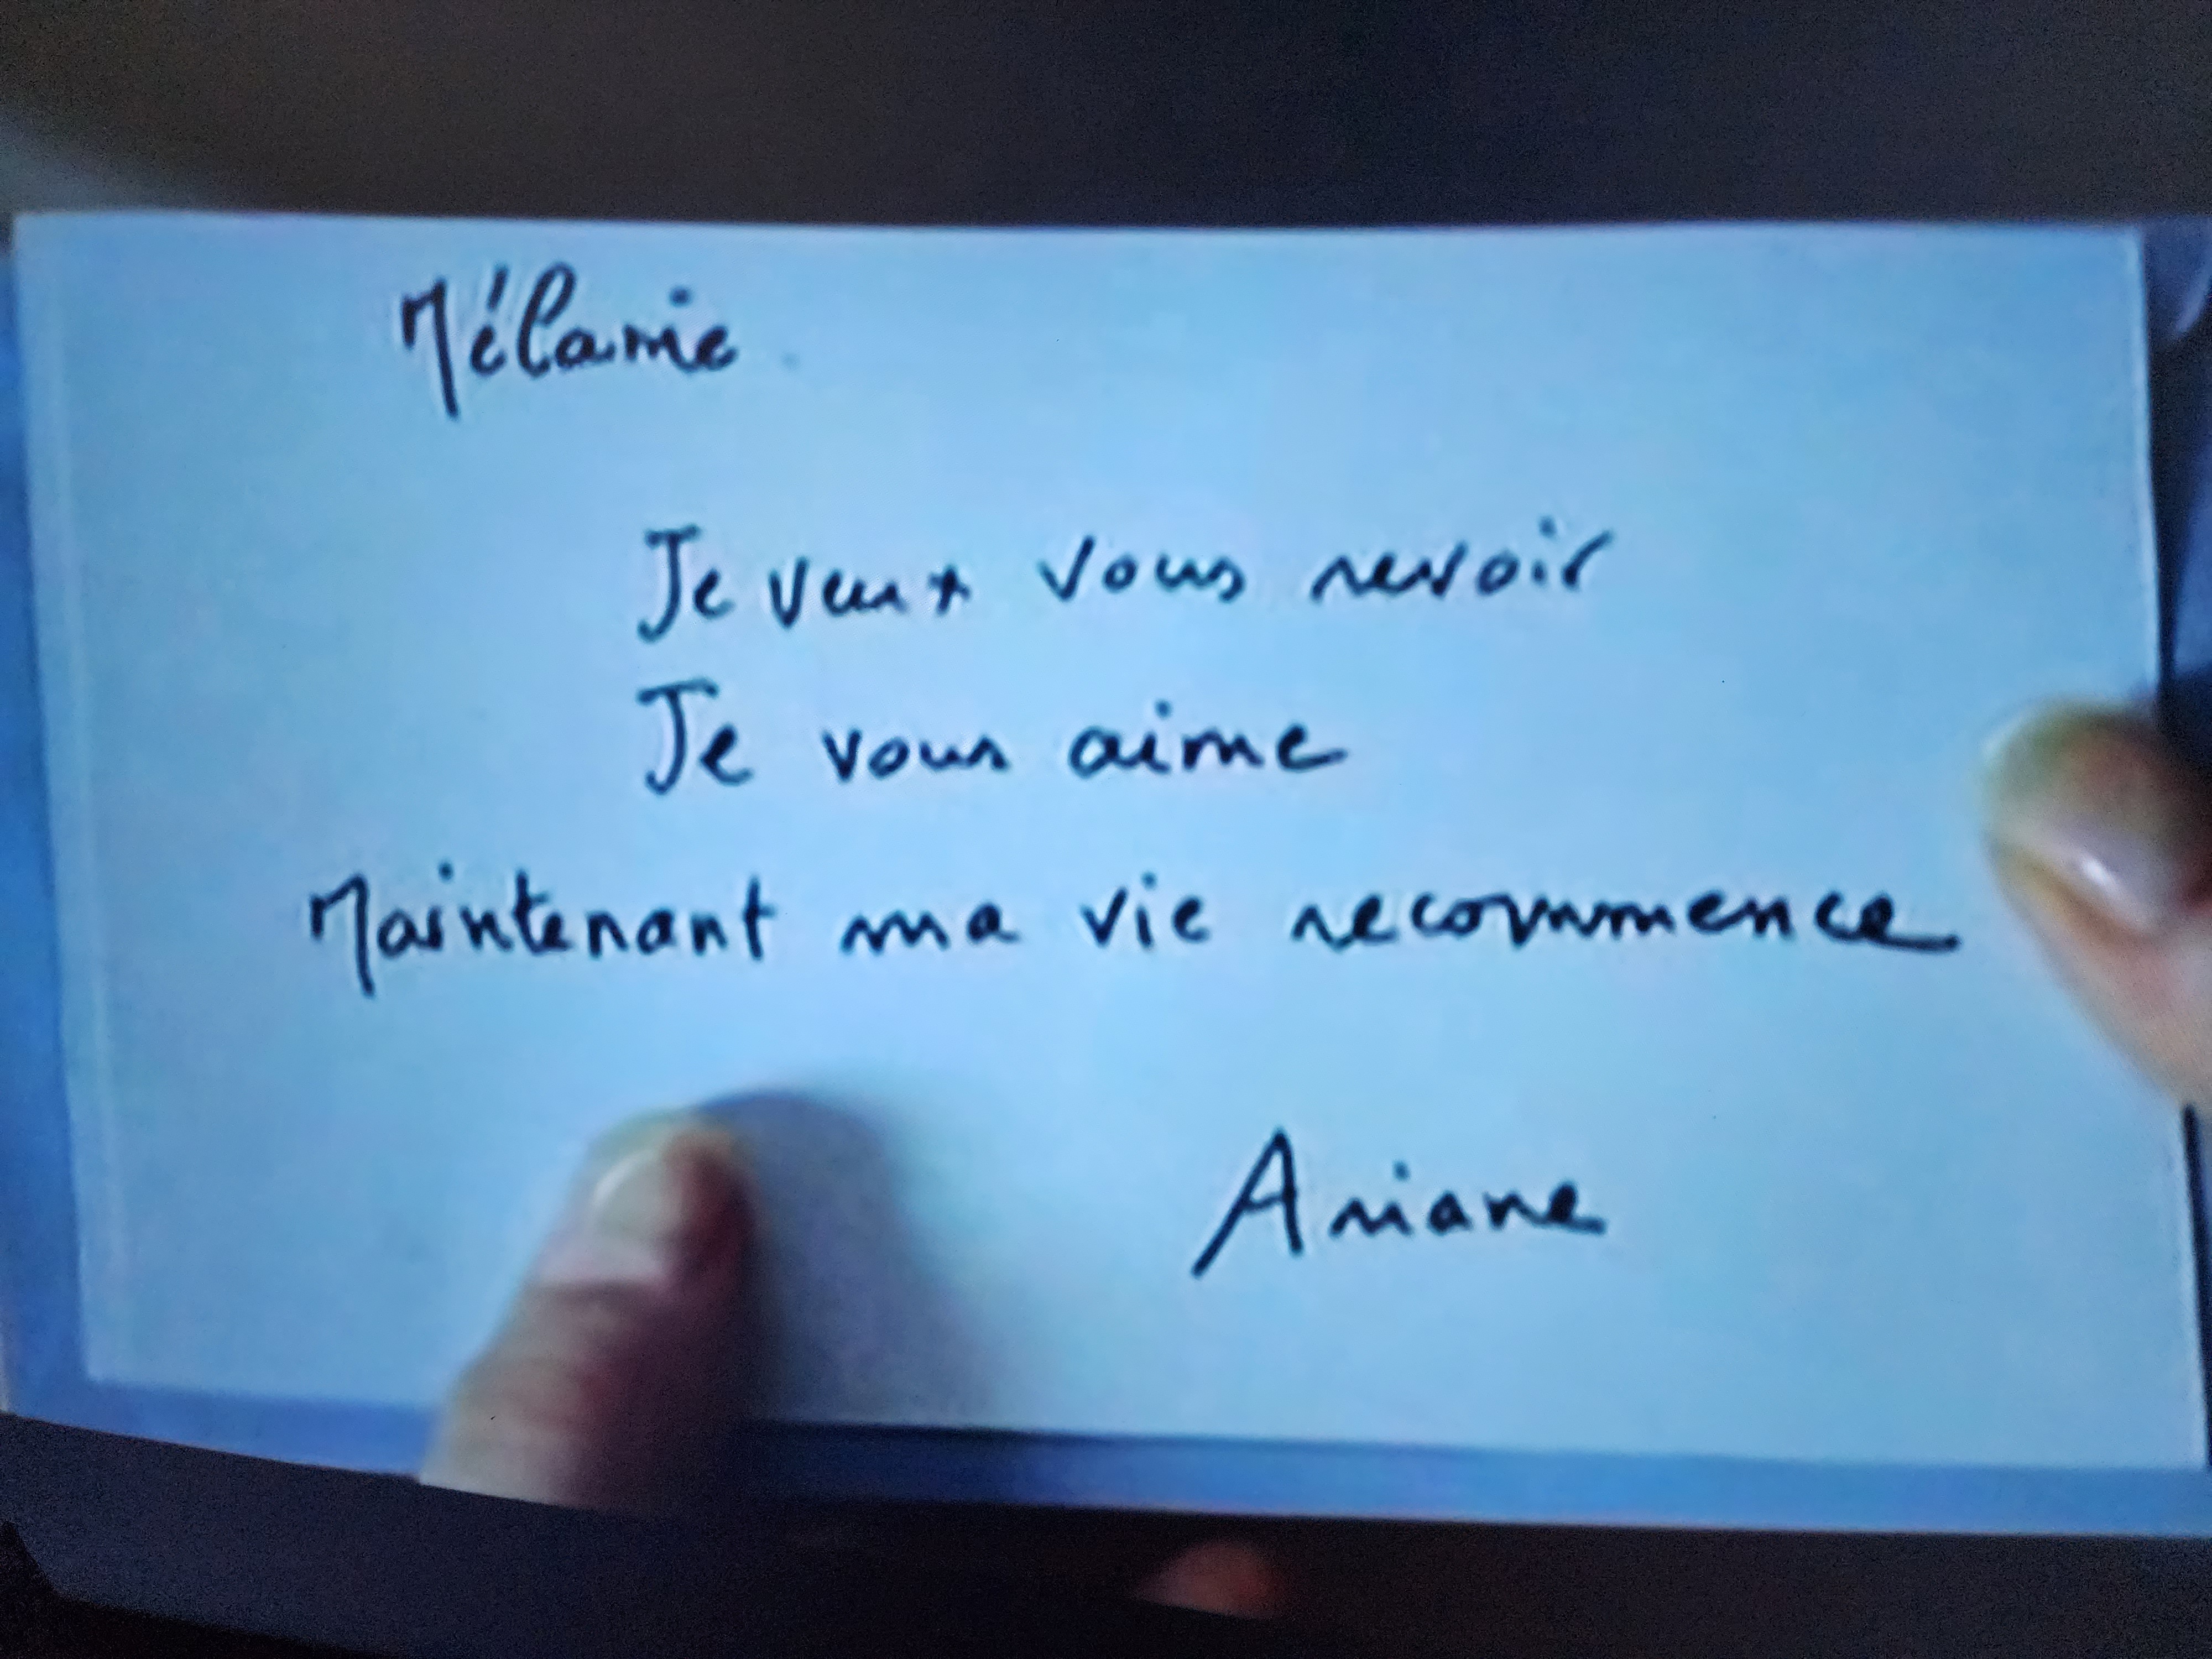 Mélanie
Je veux vous revoir
Je vous aime
Maintenant ma vie recommence
Ariane